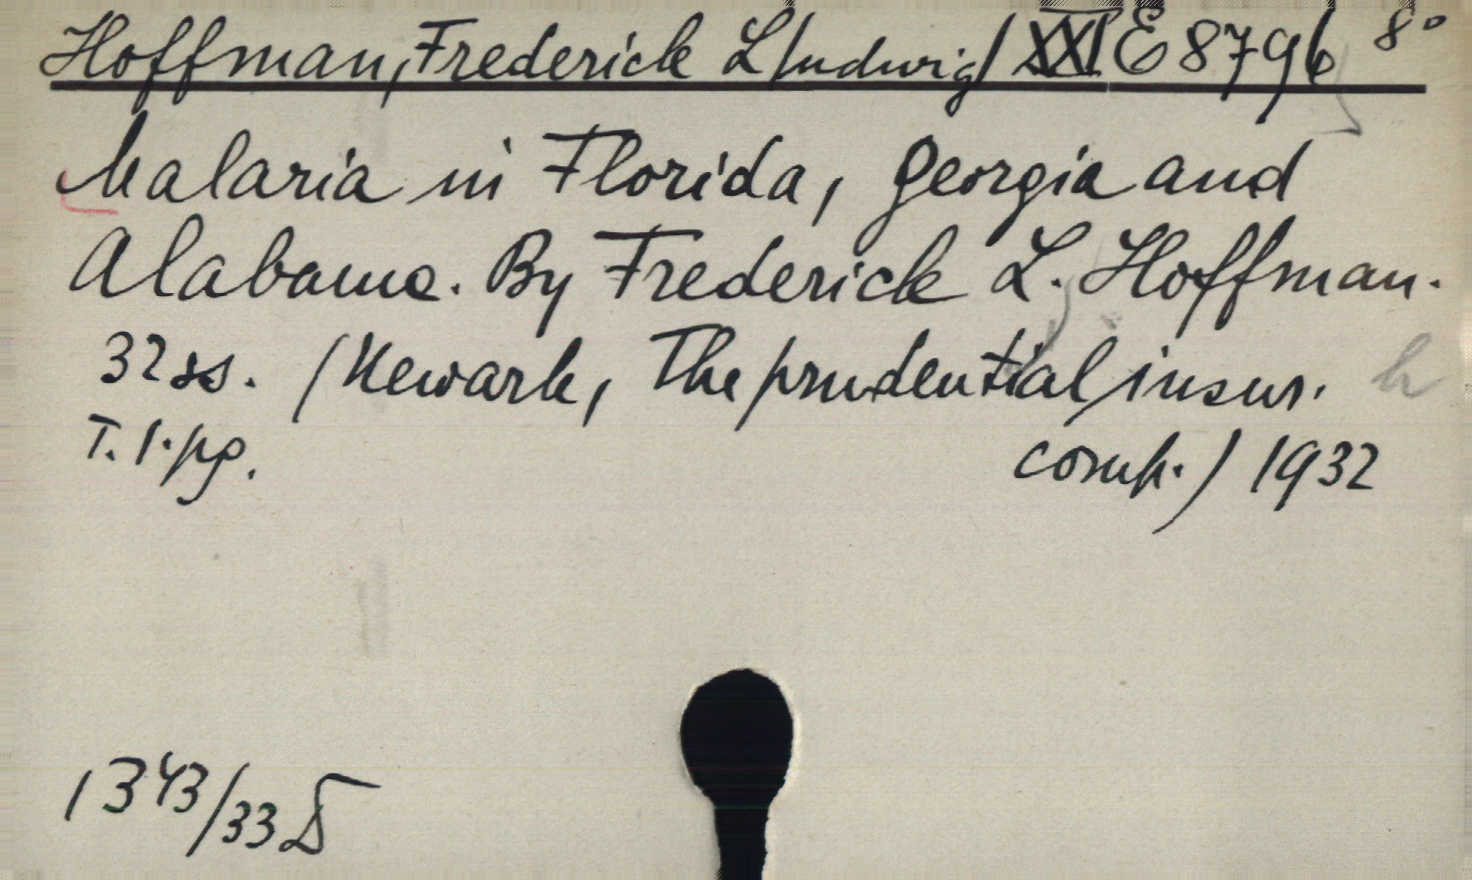 Hoffman, Frederick L/udwig/ XXI E 8796 8°
Malaria in Florida, Georgia and
Alabama. By Frederick L. Hoffman.
32 ss. (Newark, The prudential insur. h
T. 1. pg. comp.) 1932
1343/33 D